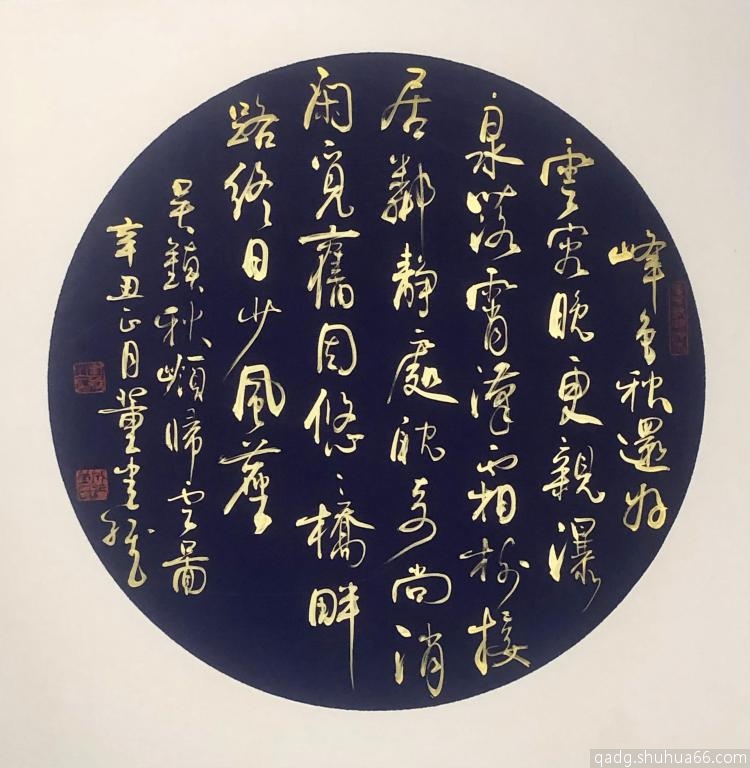 峰色秋還好
雲容晚更親瀑
泉落霄漢霜树接
居鄰靜處耽奇尚消
閑覓舊因悠々橋畔
路終日少風塵
吴鎮秋嶺歸云圖
辛丑正月董
qadg.shuhua66.com